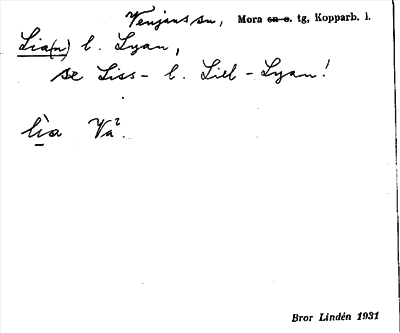 Venjans sn, Mora sn o. tg, Kopparb. l.
Lia(n) l. Lyan,
se Liss- l. Lill-Lyan!
lìa Va².
Bror Lindén 1931